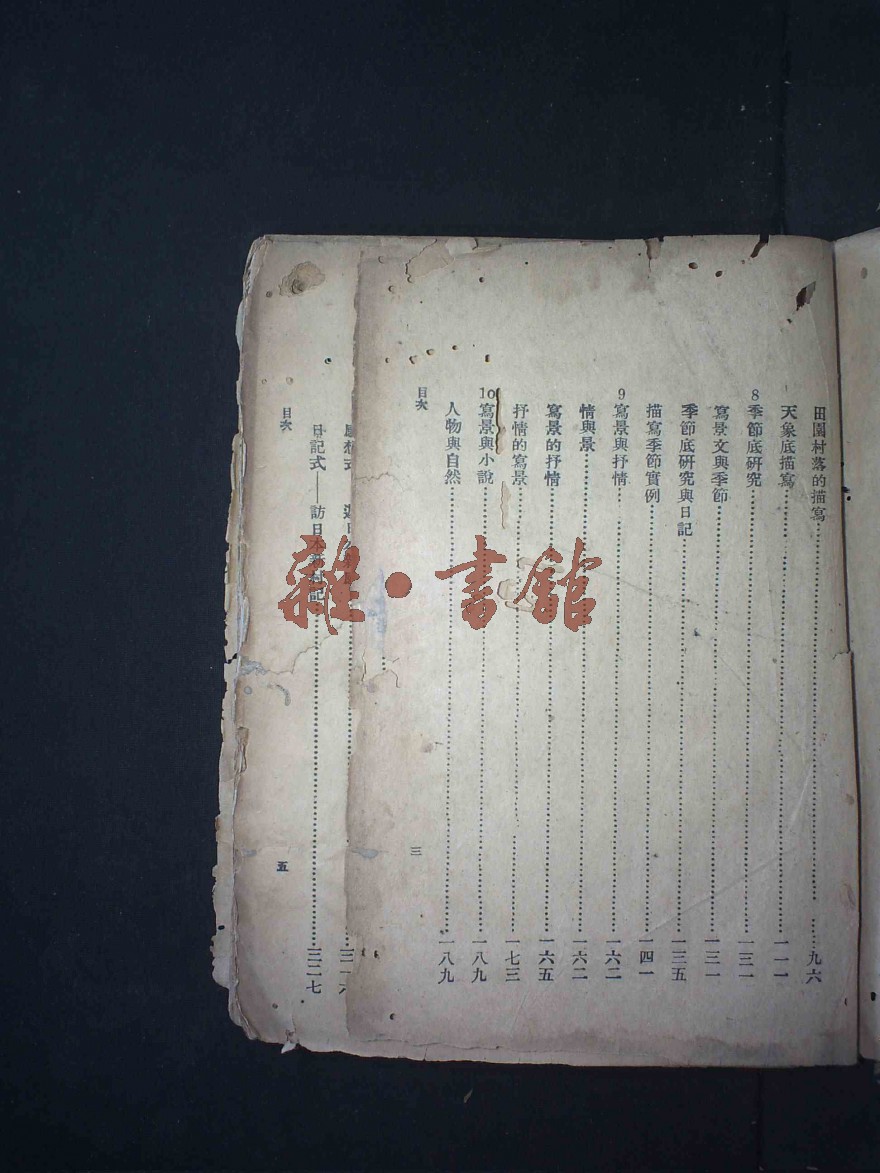 田園村落的描寫……九六
天象底描寫……一一一
8 季節底研究……一三一
寫景文與季節……一三一
季節底研究與日記……一三五
描寫季節實例……一四一
9 寫景與抒情……一六二
情與景……一六二
寫景的抒情……一六五
抒情的寫景……一七三
10 寫景與小說……一八九
人物與自然……一八九
目次
三
日記式——訪日本 記……三二七
目次
五
雜·書館